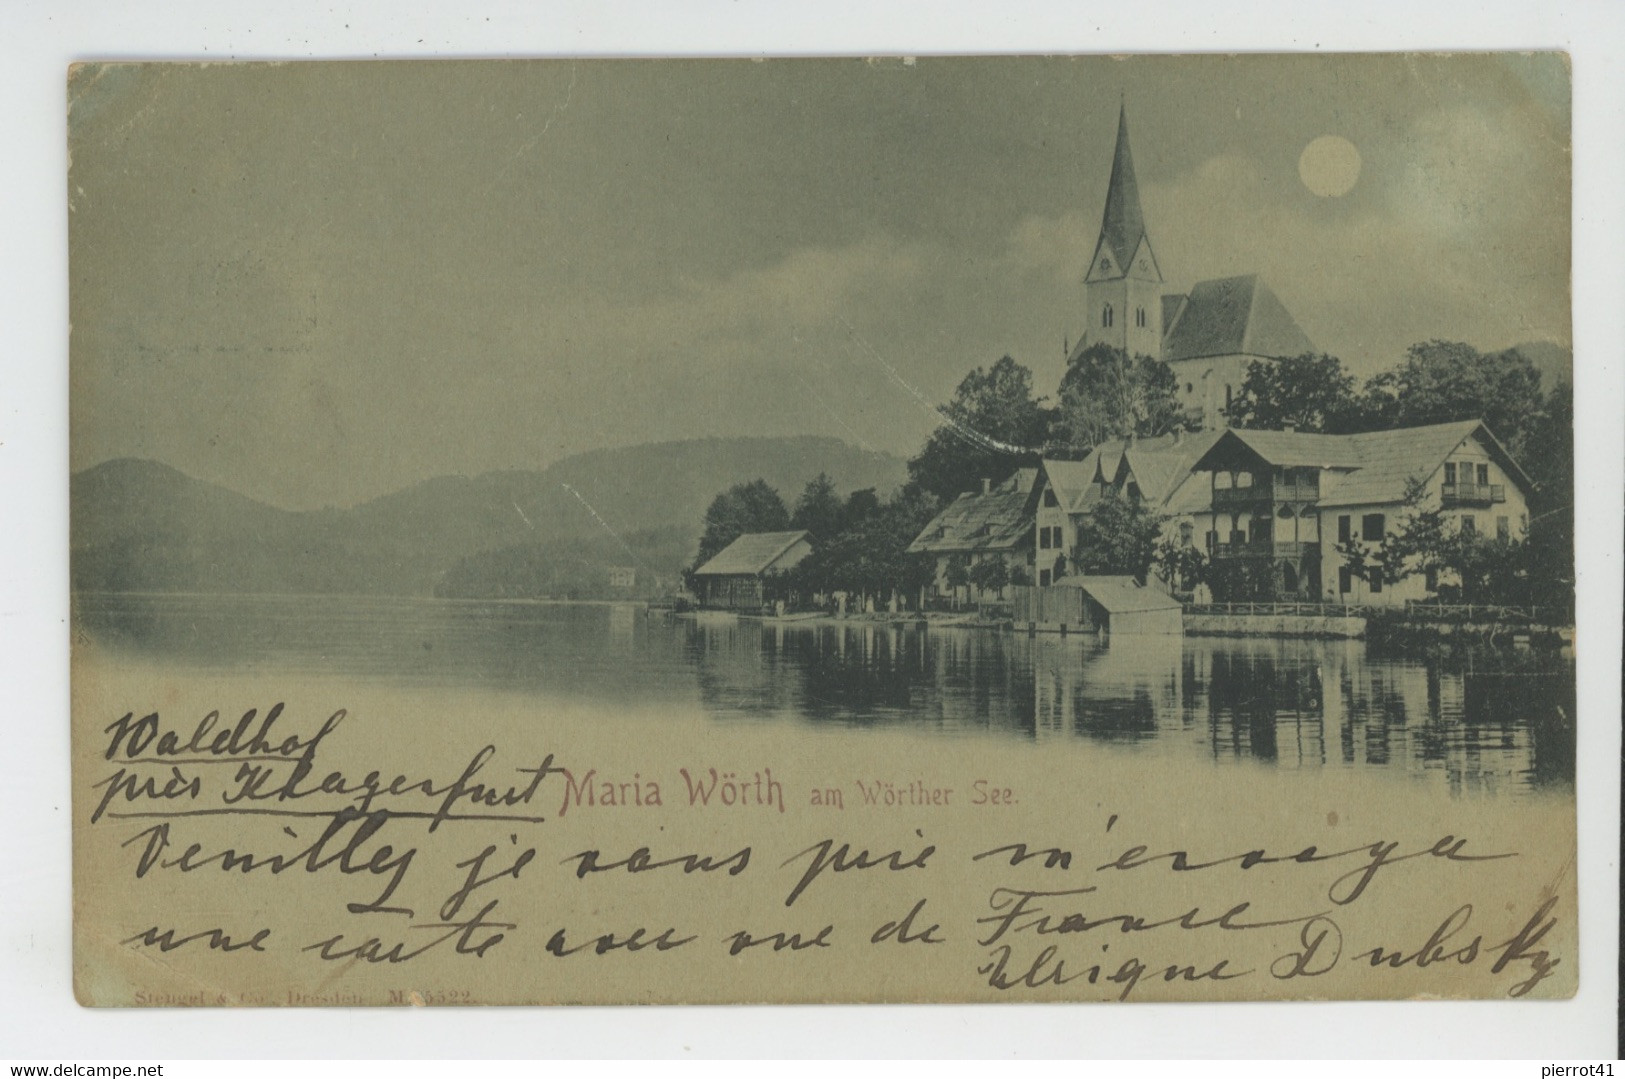 Waldhof
près Klagenfurt
Maria Wörth am Wörther See.
Venilley je vous prie m'envoyer
une carte avec vue de France
Ulrique Dubsky
Stengel & Co. Dresden M. 5522.
www.delcampe.net
pierrot41